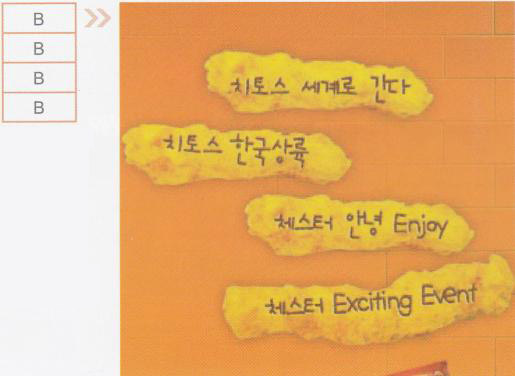 B
B
B
B
치토스 세계로 간다
치토스 한국상륙
체스터 안녕 Enjoy
체스터 Exciting Event